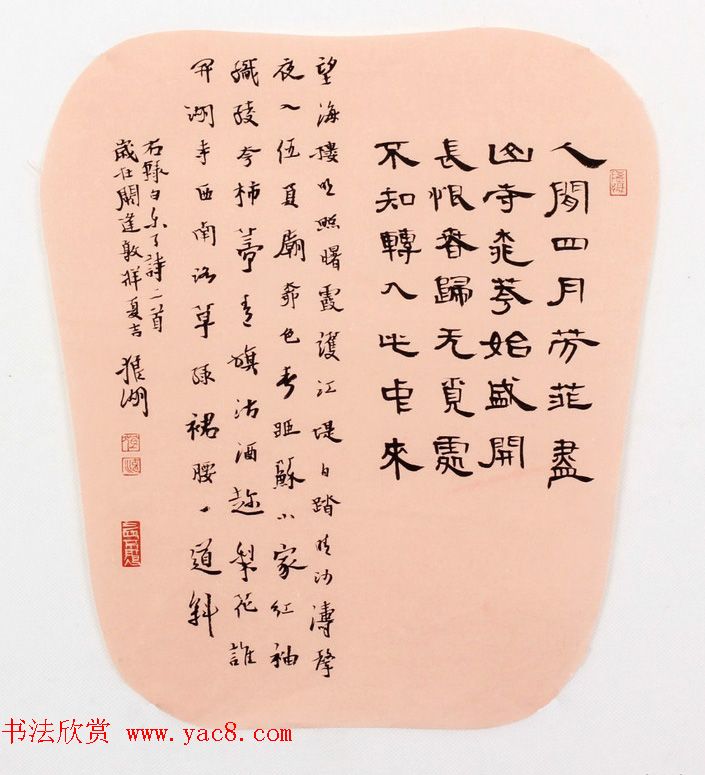 人閒四月芳菲盡
山寺桃華始盛開
長恨春歸无覓處
不知轉入此中來
望海樓明照曙霞護江堤白踏晴沙濤聲
夜入伍員廟柳色春藏蘇小家紅袖
織綾夸柿蔕青旗沽酒趁梨花誰
開湖寺西南路草綠裙腰一道斜
右錄白樂天詩二首
歲在閼逢敦牂夏吉
书法欣赏 www.yac8.com